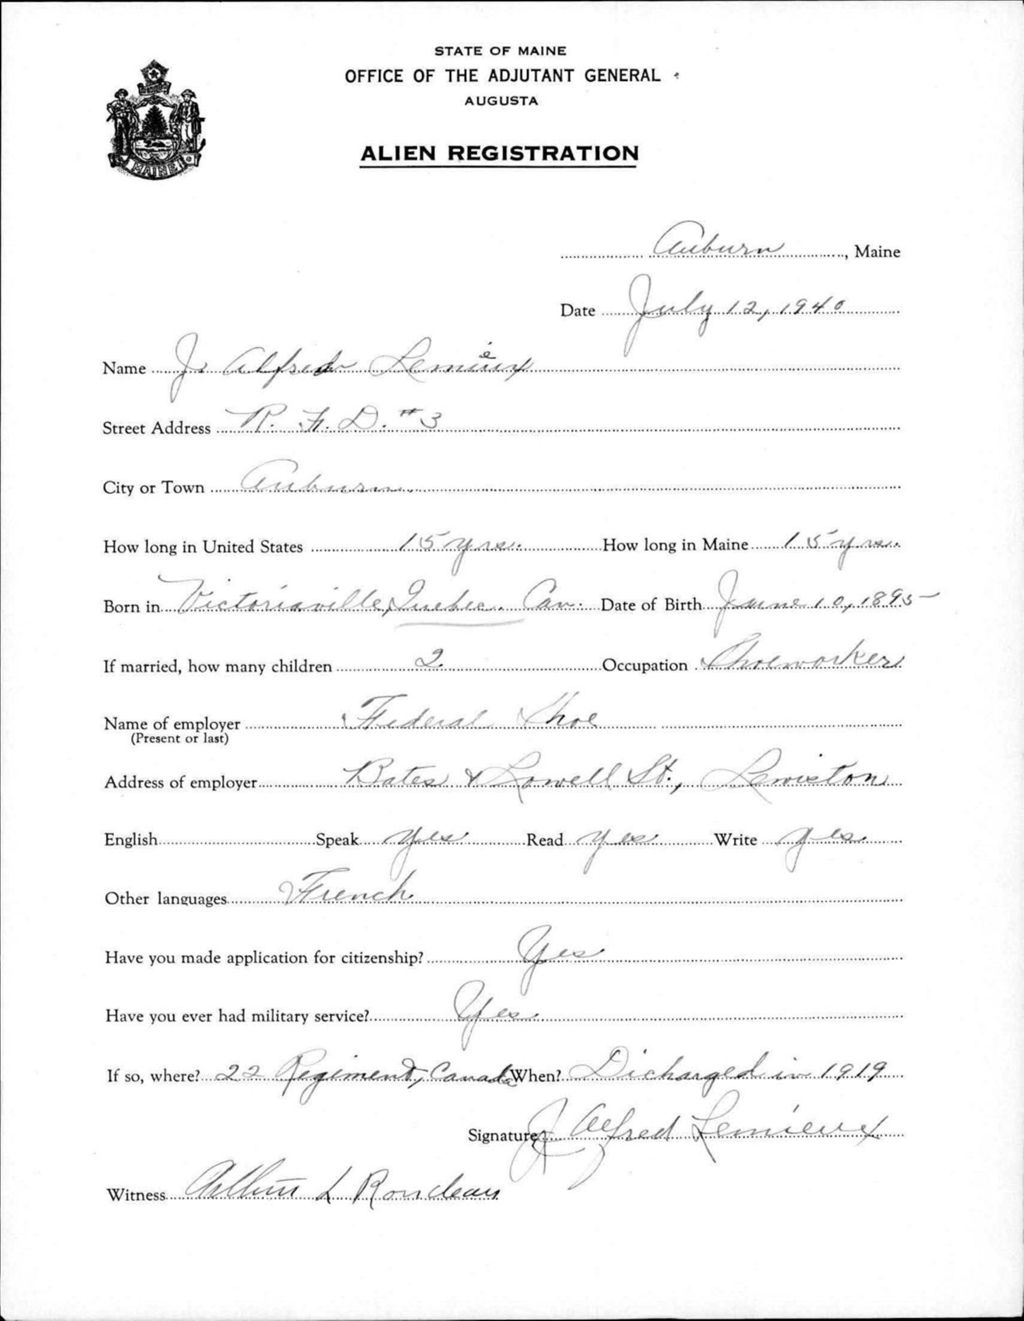 STATE OF MAINE
OFFICE OF THE ADJUTANT GENERAL
AUGUSTA
ALIEN REGISTRATION
MAINE
Auburn, Maine
Date July 12, 1940
Name J. Alfred Lemieux
Street Address R. F. D. #3
City or Town Auburn
How long in United States 15 yrs. How long in Maine 15 yrs.
Born in Victoriaville, Quebec Can. Date of Birth June 10, 1895
If married, how many children 2 Occupation Shoeworker
Name of employer Federal Shoe
(Present or last)
Address of employer Bates & Lowell St., Lewiston
English Speak yes Read yes Write yes
Other languages French
Have you made application for citizenship? Yes
Have you ever had military service? Yes
If so, where? 22 Regiment, Canada When? Discharged in 1919
Signature J. Alfred Lemieux
Witness L Rondeau